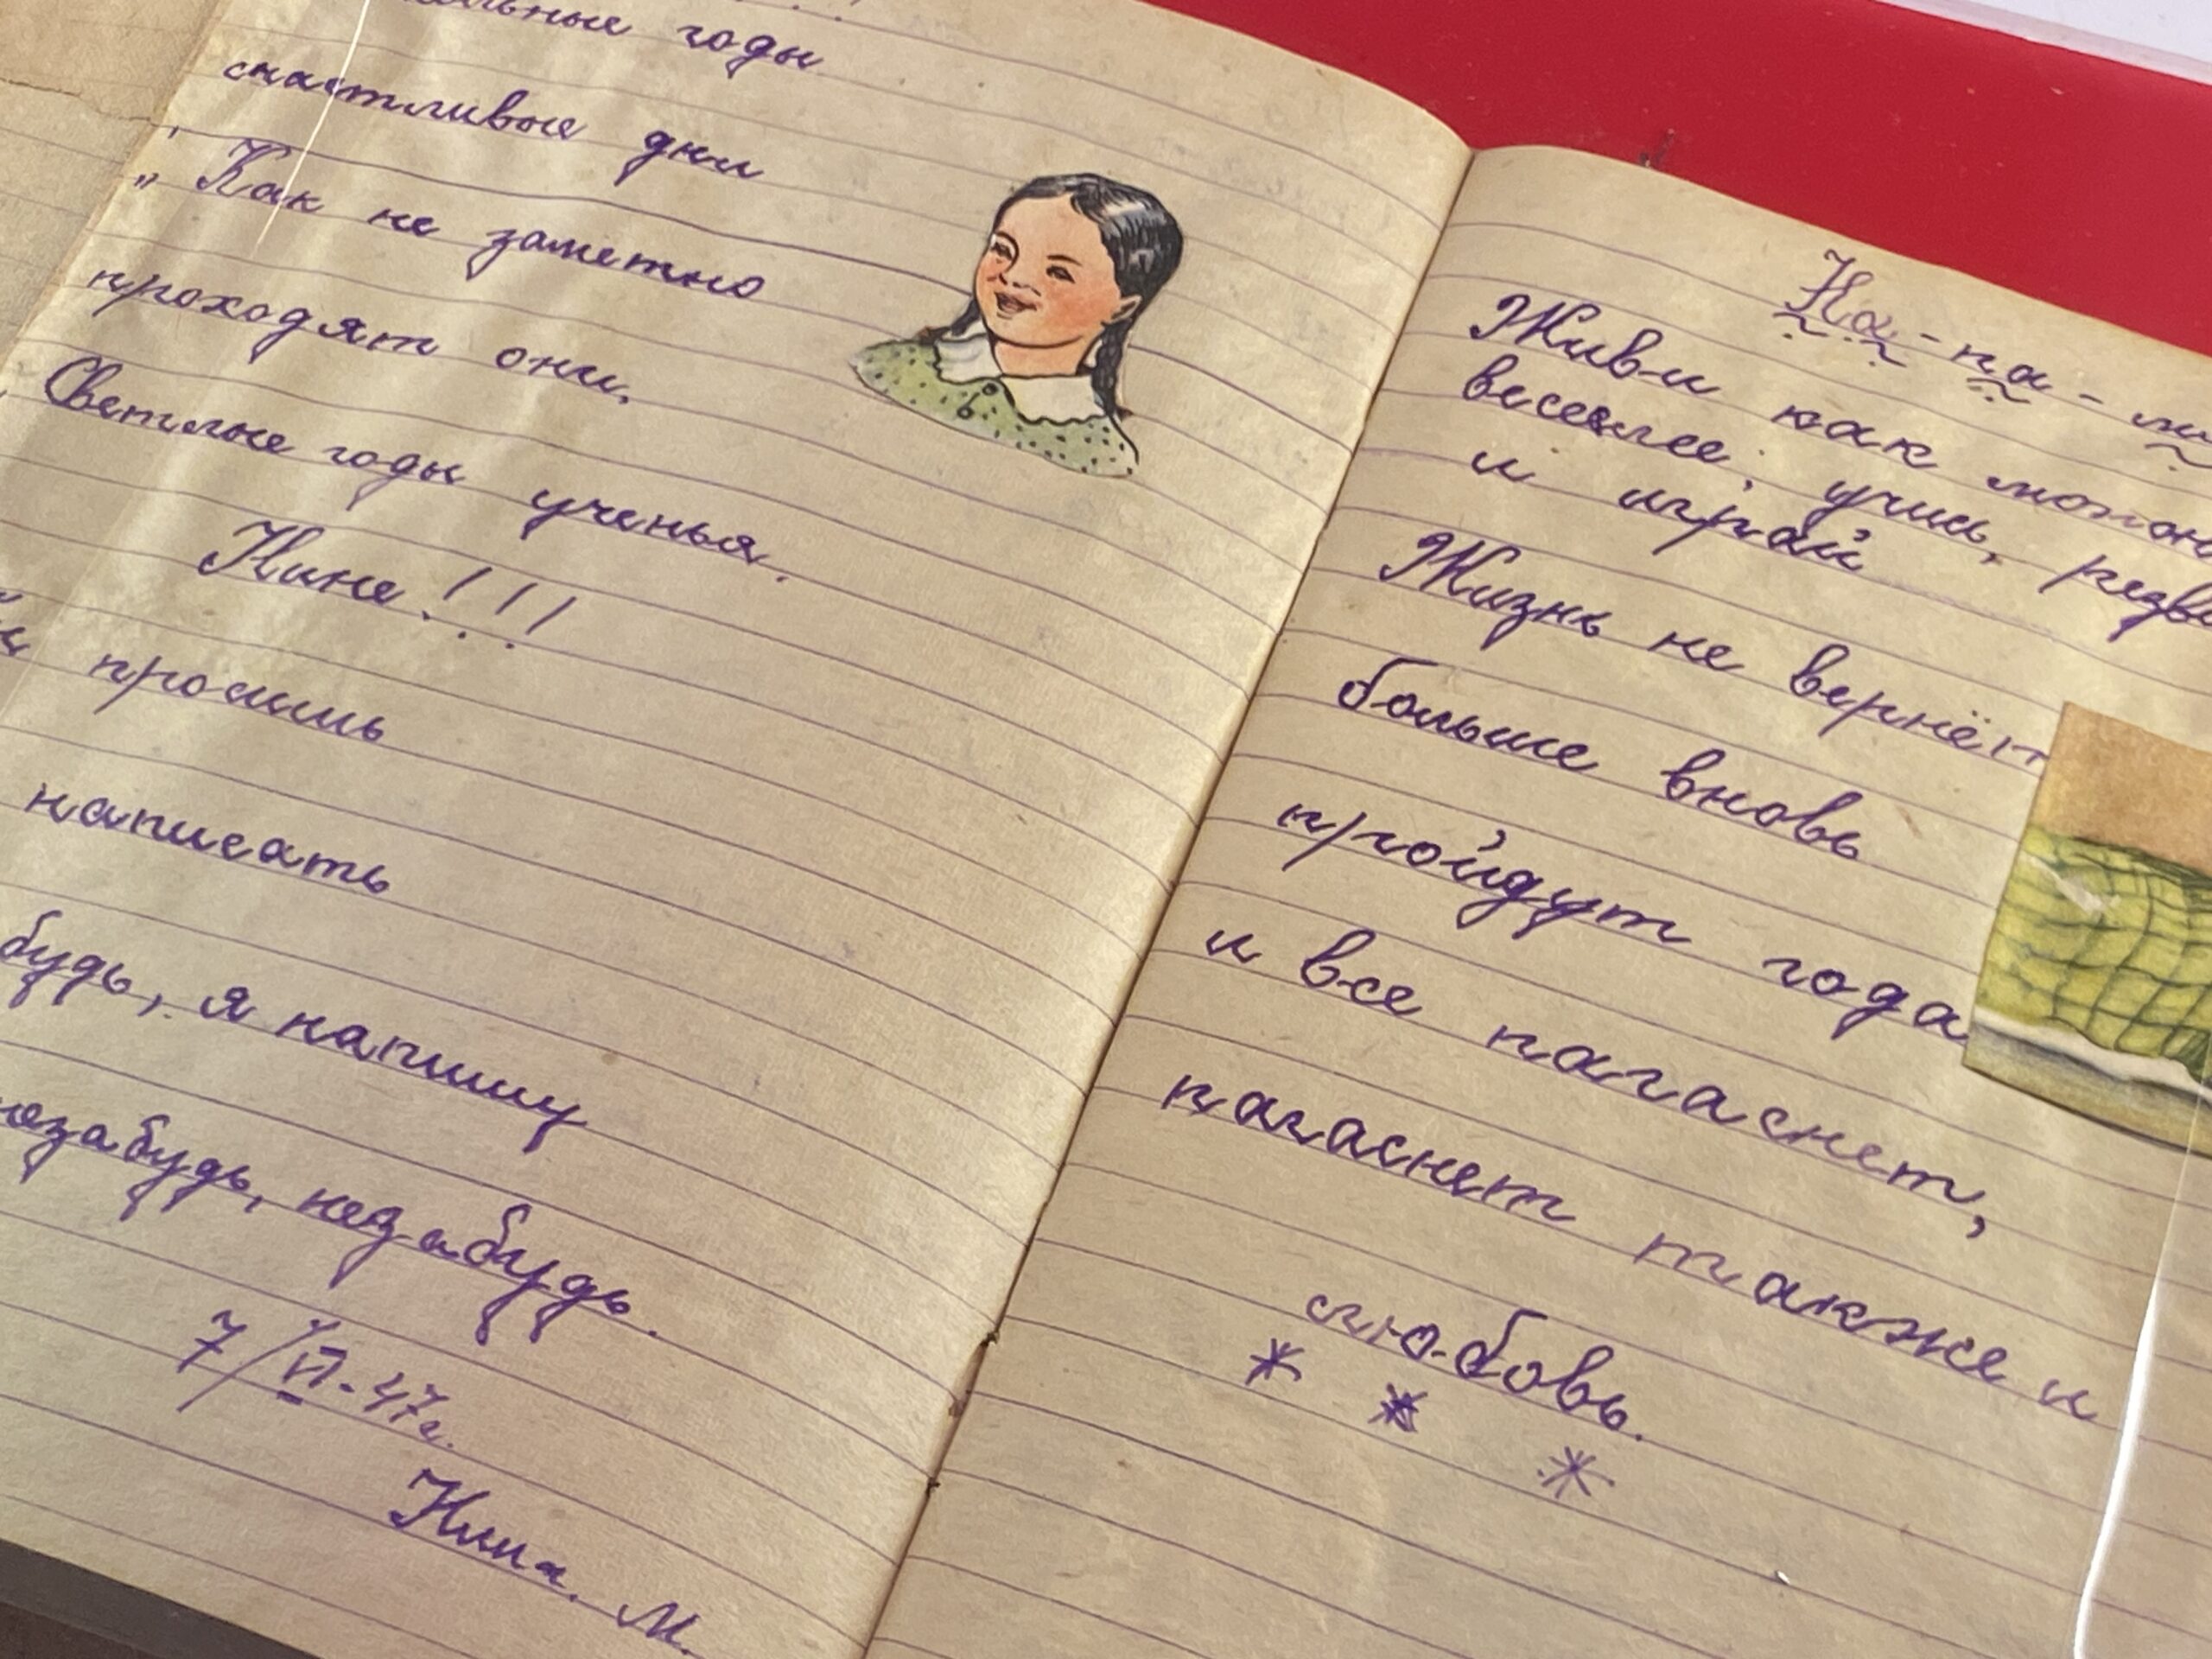 годы
счастливые дни
„ Как не заметно
проходят они,
Светлые годы ученья.
Нине!!!
просишь
написать
будь, я напишу
незабудь.
7/VI-47г.
Нина. М.
На-па-
Живи как
веселее, учись,
и играй
Жизнь не вернёт
больше вновь
пройдут года
и все пагаснет,
пагаснет также и
любовь.
* * *